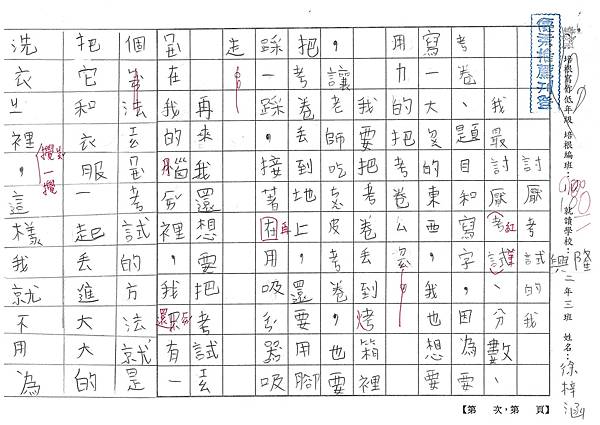 培根寫作低年級 培根編班: 就讀學校:興隆 二年三班 姓名:徐梓涵
討厭考試的我
我最討厭考試、分數、
考卷、題目和寫字,因為要
寫一大的東西,我也想要
用力的把考卷
我要把考卷丟到烤箱裡
,讓老師吃皮考卷也要
把考卷丟到地上,還要用腳
踩一踩,接著再用吸器吸
走
再來我還想要把考試
在我的腦裡,我還有一
個法考試的方法就是
把它和衣服一起丟進大大的
洗衣ㄐ裡,這樣我就不用為
【第 次,第 頁】